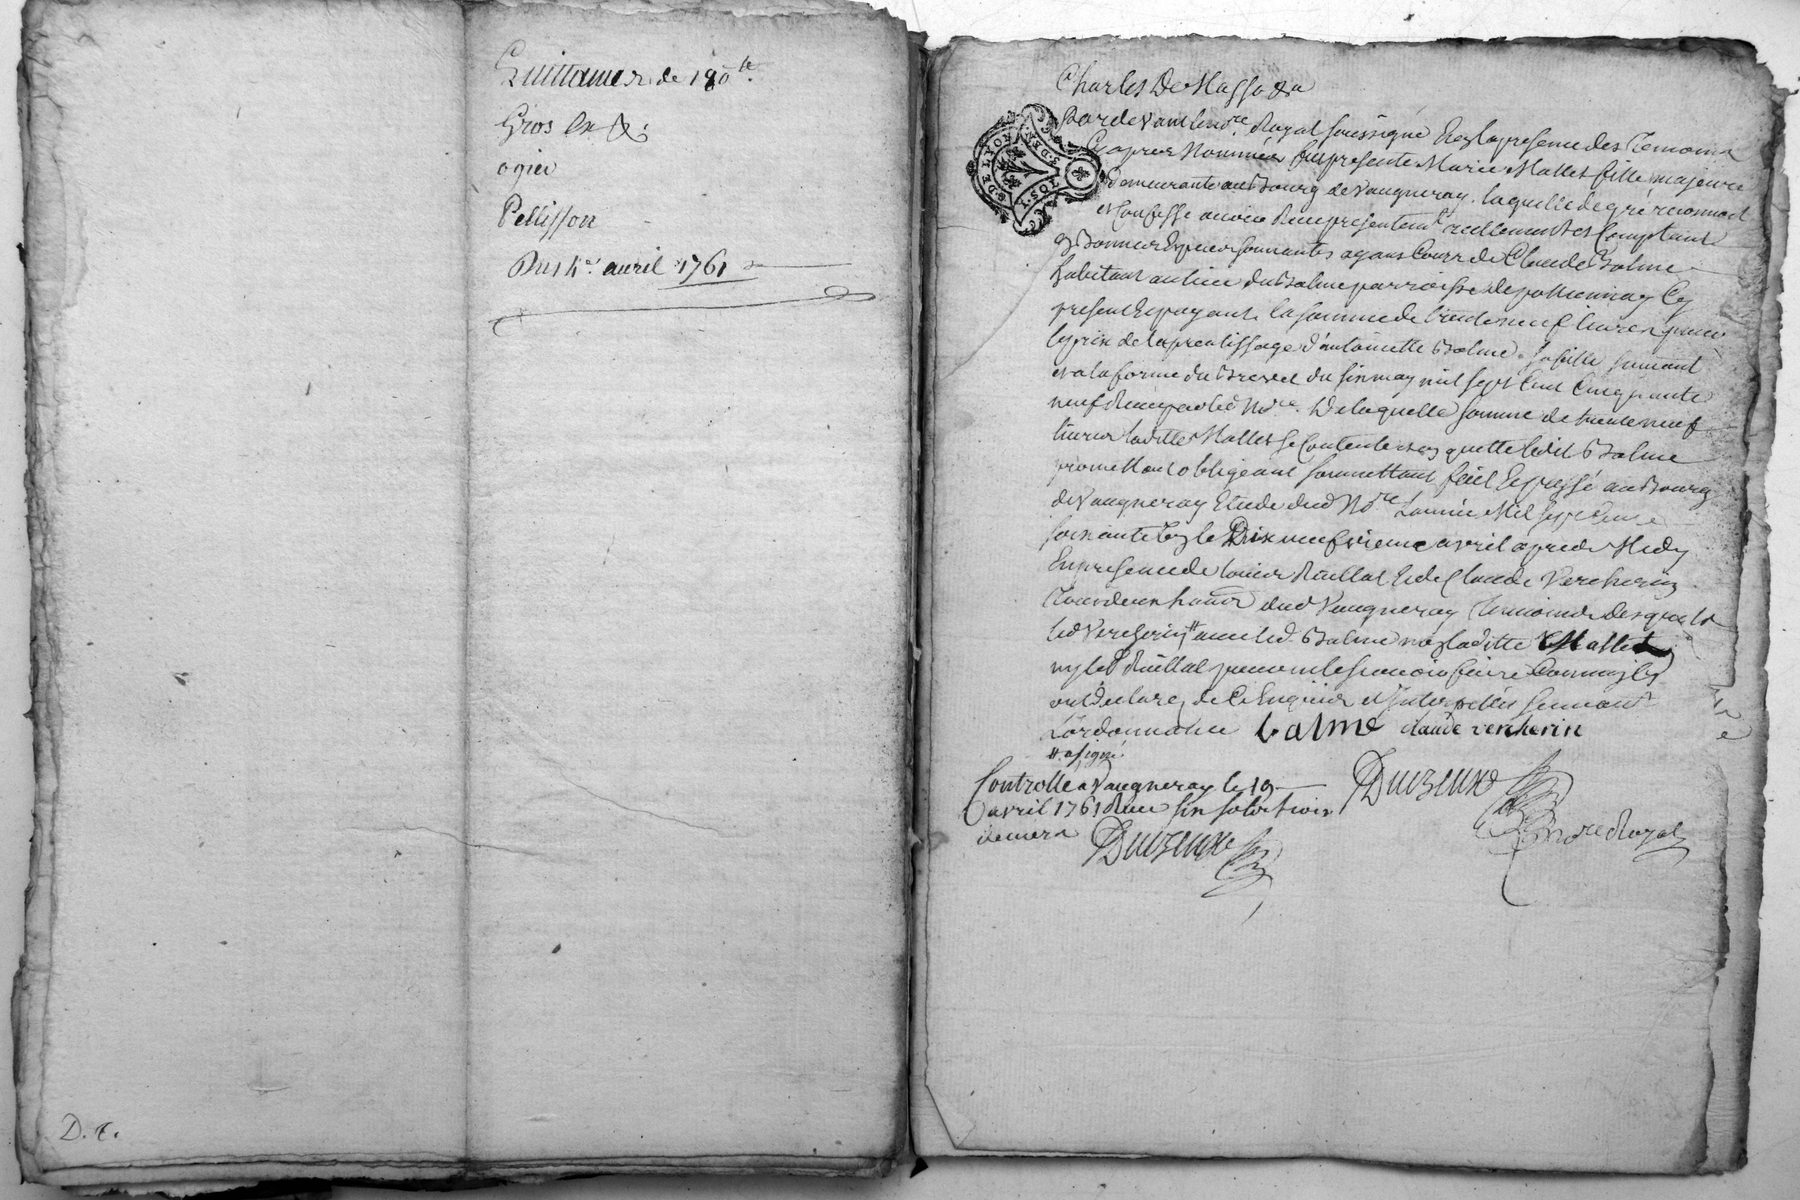 Quittance de 180 lt.
Gros &
ogier
Pellisson
Du 4e. avril 1761
D. C.
Charles De Masso &a
G. DE LYON
3. DEN.
Pardevant le no.re Royal soussigné Et en la presence des Temoins
Cy apres Nommées fut presente Marie Mallet fille majeure
demeurante au Bourg de Vaugneray. laquelle de gré reconnoit
et Confesse avoir Receu presentemt. reellement et Comptant
en bonnes Especes sonnantes ayans Cours de Claude Balme
habitant au lieu du Balme parroisse de pollionnay Cy
present Et payant la somme de trente neuf livres pour
le prix de laprentissage d'antoinette Balme sa fille suivant
et a la forme du Brevet du six may mil sept Cent Cinquante
neuf Receu par led No.re. De laquelle somme de trente neuf
livres laditte Mallet se Contente et en quitte ledit Balme
promettant obligeant soumettant fait Et passé au Bourg
de Vaugneray Etude dud No.re L'année Mil sept Cent
soixante Et un le Dix neufvieme avril apres Midy
En presence de Ruillat Et de Claude Vercherin
Tous deux dud Vaugneray temoins desquels
led Vercherin # avec led. Balme non laditte Mallet
ny led Ruillat pour ne le sçavoir faire Comme ils
ont declaré de Ce Enquis et Interpellés suivant
L'ordonnance balme claude vercherin
# a signé
Controllé a Vaugneray le 19
avril 1761 Receu six sols trois
deniers
no.re Royal